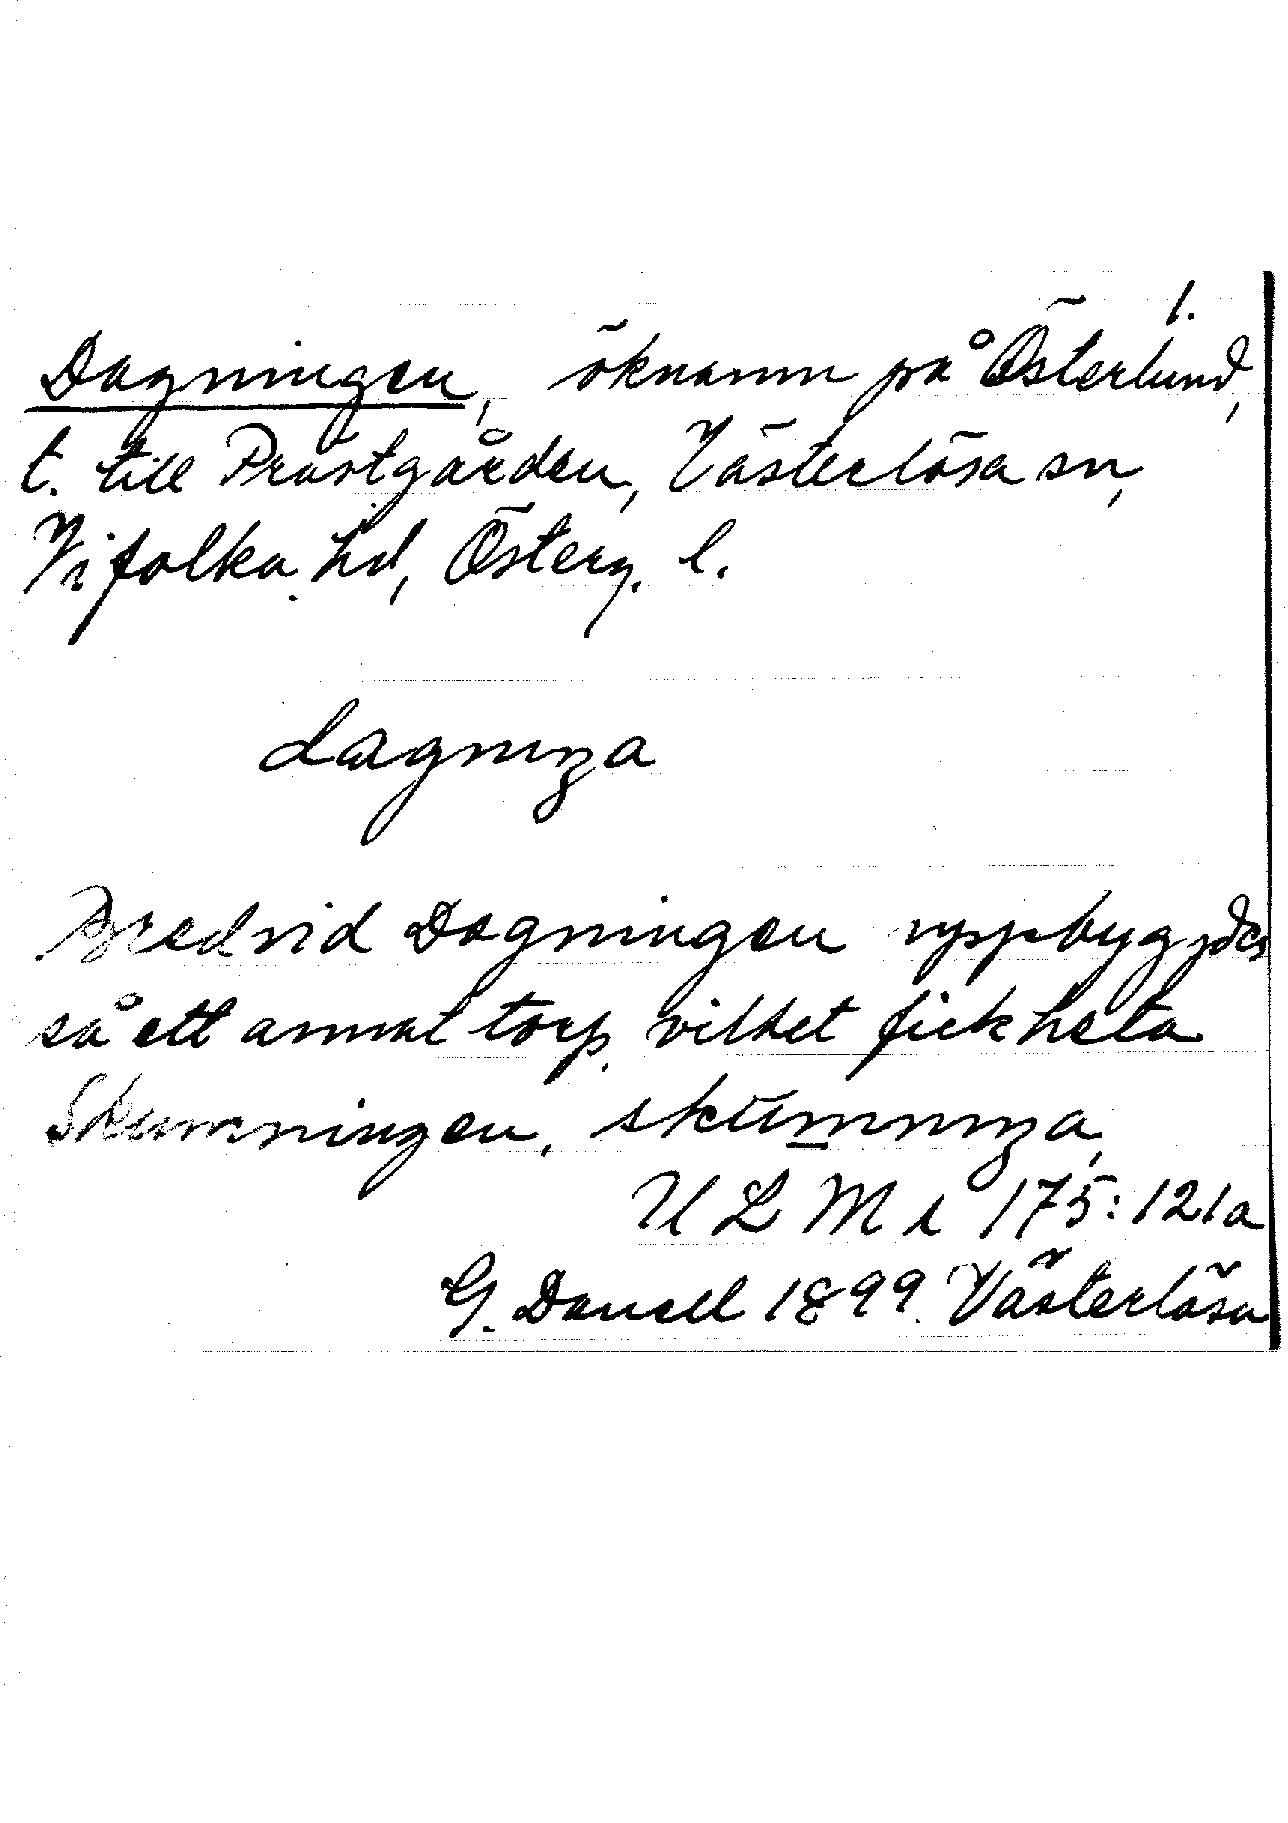 1.
Dagningen, öknamn på Österlund,
t. till Prästgården, Västerlösa sn,
Vifolka hd, Österg. l.
Bredvid Dagningen uppbyggdes
så ett annat torp, vilket fick heta
Skumningen,
U L M A 175:121a
G. Danell 1899. Västerlösa